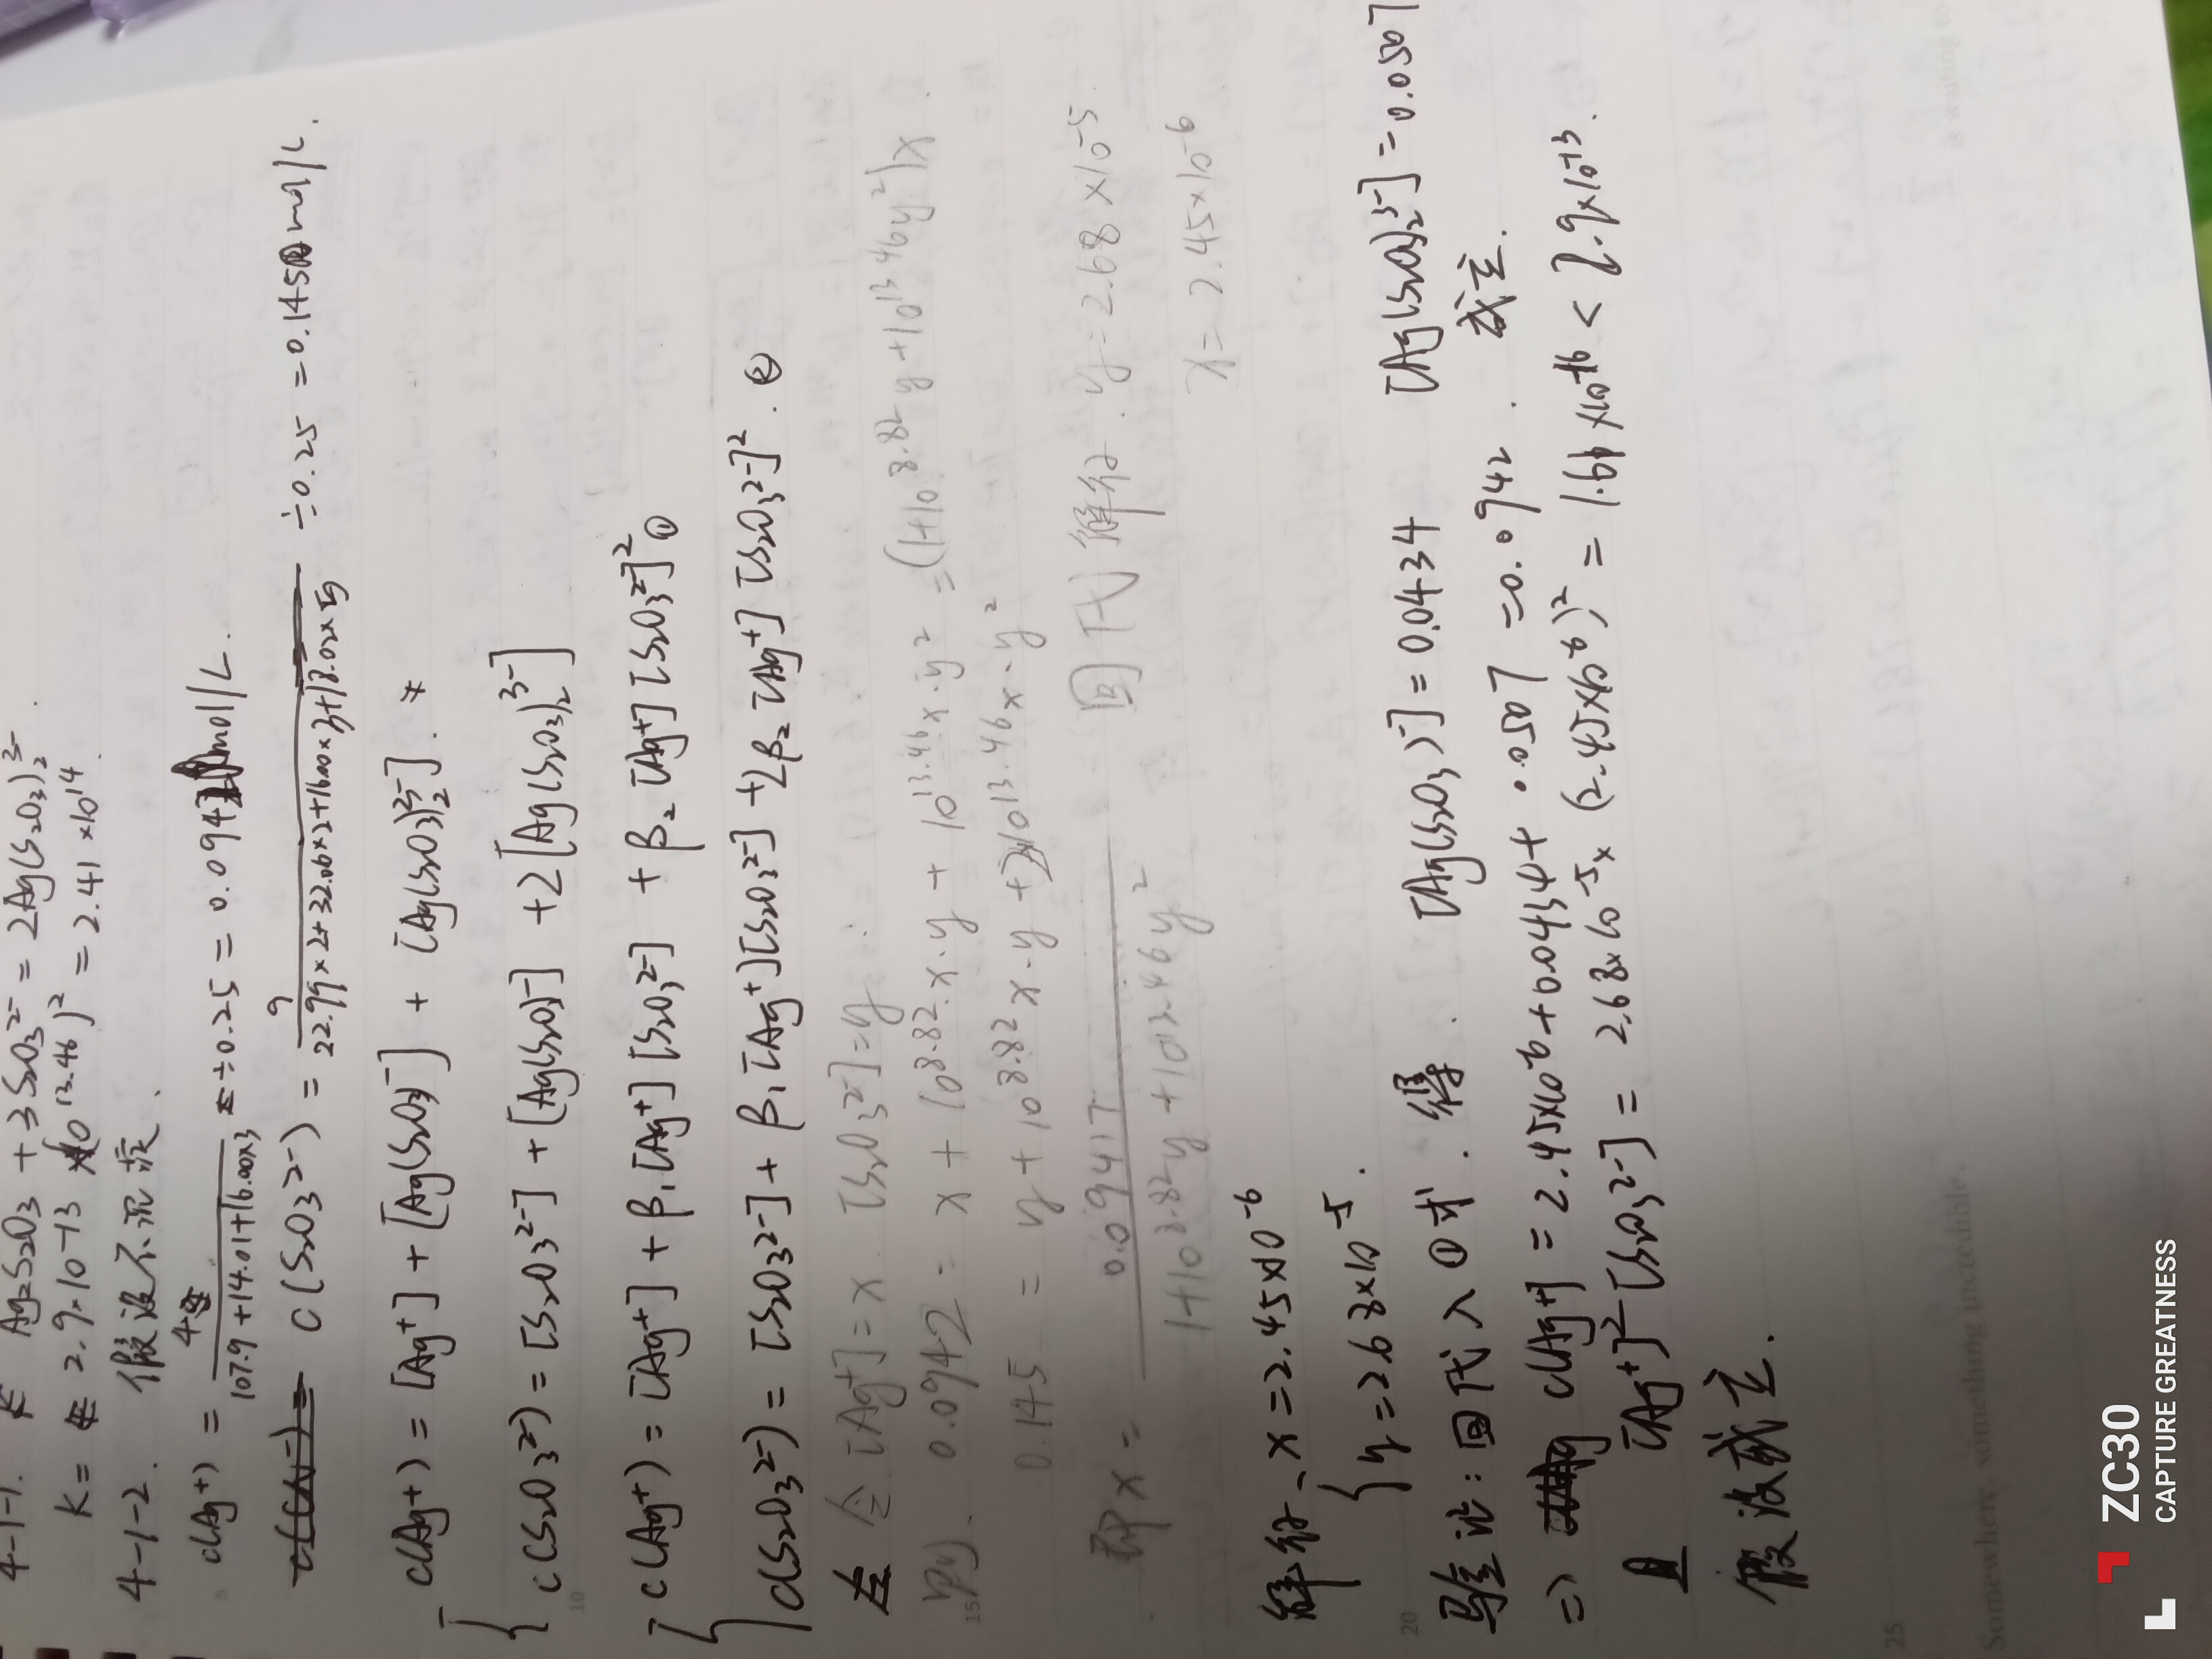 4-1-1. K Ag₂S₂O₃ + 3S₂O₃²⁻ = 2Ag(S₂O₃)₂³⁻
K = 2.9×10⁻¹³ ×(10^13.46)² = 2.41×10¹⁴.
4-1-2. 假设不沉淀、
c(Ag⁺) = 4 / (107.9+14.01+16.00×3) ÷0.25 = 0.0942 mol/L.
c(S₂O₃²⁻) = 9 / (22.99×2+32.06×2+16.00×3+18.02×5) ÷0.25 = 0.145 mol/L.
c(Ag⁺) = [Ag⁺] + [Ag(S₂O₃)⁻] + [Ag(S₂O₃)₂³⁻].
c(S₂O₃²⁻) = [S₂O₃²⁻] + [Ag(S₂O₃)⁻] + 2[Ag(S₂O₃)₂³⁻]
c(Ag⁺) = [Ag⁺] + β₁[Ag⁺][S₂O₃²⁻] + β₂[Ag⁺][S₂O₃²⁻]² ①
c(S₂O₃²⁻) = [S₂O₃²⁻] + β₁[Ag⁺][S₂O₃²⁻] + 2β₂[Ag⁺][S₂O₃²⁻]². ②
令[Ag⁺]=x [S₂O₃²⁻]=y
即. 0.0942 = x + 10^8.82 x·y + 10^13.46 x·y² = (1+10^8.82 y+10^13.46 y²)x
0.145 = y + 10^8.82 x·y + 2×10^13.46 x·y²
即 x = 0.09417 / (1+10^8.82 y+10^13.46 y²) 回代 解得 y = 2.68×10⁻⁵.
x = 2.45×10⁻⁶
解得 { x = 2.45×10⁻⁶
y = 2.68×10⁻⁵.
验证: 回代入①式. 得 [Ag(S₂O₃)⁻] = 0.0434 [Ag(S₂O₃)₂³⁻] = 0.0507
⇒ c(Ag⁺) = 2.45×10⁻⁶ + 0.0434 + 0.0507 = 0.0942. 成立.
且 [Ag⁺]²[S₂O₃²⁻] = 2.68×10⁻⁵ × (2.45×10⁻⁶)² = 1.61×10⁻¹⁶ < 2.9×10⁻¹³.
假设成立.
Somewhere, something incredible
is waiting to
5
10
15
20
25
ZC30
CAPTURE GREATNESS